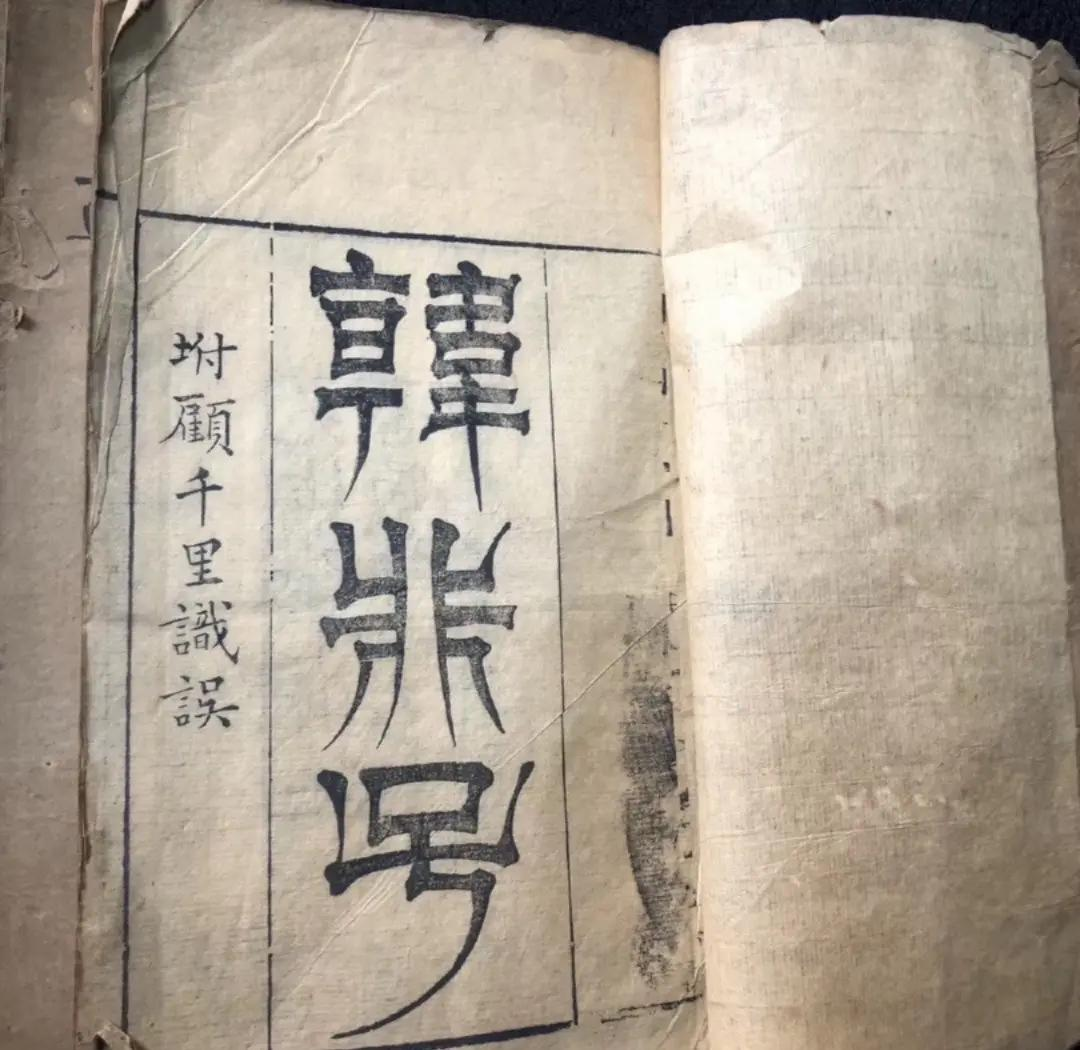 韓非子
坿顧千里識誤